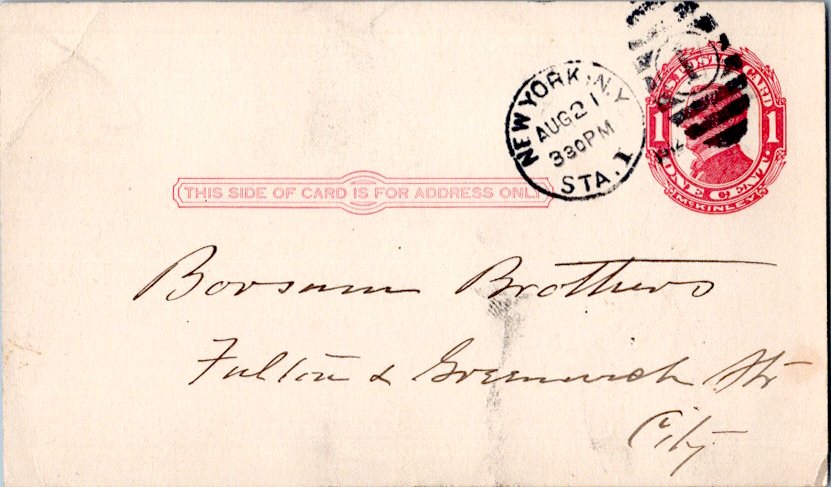 NEW YORK, N.Y.
AUG 21
330 PM
STA. I
U.S. POSTAL CARD
1 1
ONE CENT
McKINLEY
THIS SIDE OF CARD IS FOR ADDRESS ONLY
Brothers
Fulton & Greenwich Sts
City